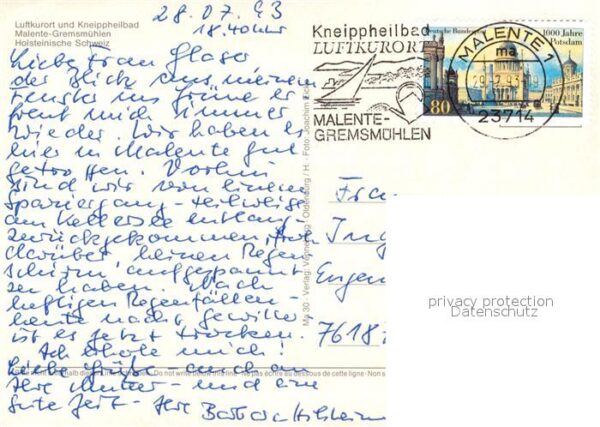 Luftkurort und Kneippheilbad
Malente-Gremsmühlen
Holsteinische Schweiz
28.07.93
18.40 Uhr
Liebe Frau Glaser,
der Blick aus meinem
Fenster ins Grüne er
freut mich immer
wieder. Wir haben es
hier in Malente gut
getroffen. Vorhin
sind wir von einem
Spaziergang - teilweise
am Kellersee entlang
zurückgekommen,
darüber, keinen Regen
schirm aufgespannt
zu haben. Nach
heftigen Regenfällen -
heute nacht Gewitter
ist es jetzt trocken.
Ich erhole mich!
Liebe Grüße - auch an
Ihre Mutter - und eine
gute Zeit - Ihre Barbara
Ma 30 - Verlag: Oldenburg / H. Foto Joachim
Do not write below this line - Ne pas écrire au dessous de cette ligne - Non
Kneippheilbad
LUFTKURORT
MALENTE-
GREMSMÜHLEN
MALENTE 1
ma
23714
Deutsche Bundespost
1000 Jahre
Potsdam
80
Frau
Ing
Eugen
7618
privacy protection
Datenschutz